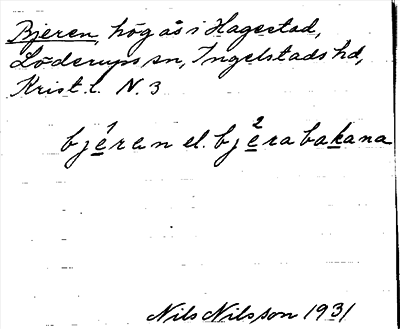 Bjeren, hög ås i Hagestad,
Löderups sn, Ingelstads hd,
Krist. l. N. 3
bjé̱ran el. bje̱²rabaka̱na
Nils Nilsson 1931